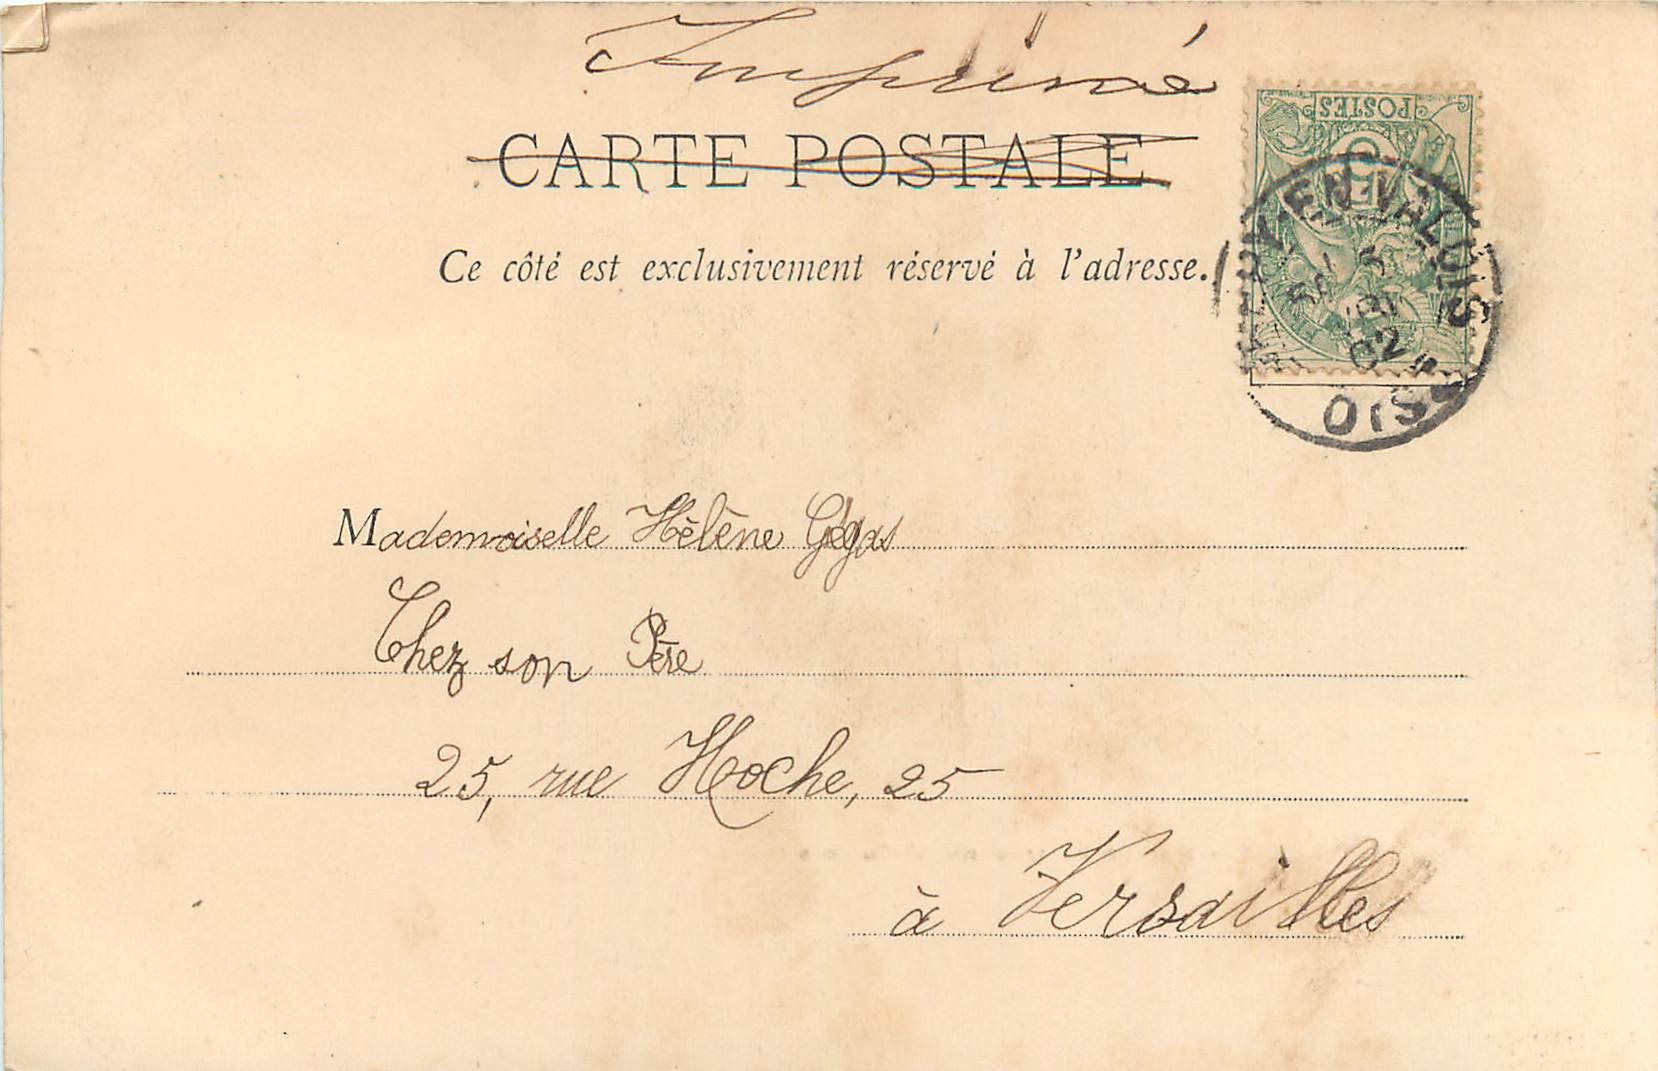 Imprimé
CARTE POSTALE
POSTES
5
EN VALOIS
OISE
02
Ce côté est exclusivement réservé à l'adresse.
Mademoiselle Hélène Gégas
Chez son Père
25, rue Hoche, 25
à Versailles